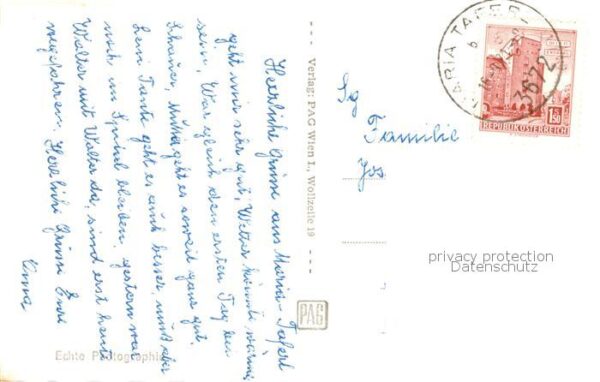 Herrliche Grüsse aus Maria-Taferl
geht mir sehr gut, Wetter könnte wärmer
sein, War gleich den ersten Tag bei
Schauer, Mühig geht es soweit ganz gut.
Dein Tante geht es auch besser, muß aber
noch im Spital bleiben. gestern war
Walter mit Walter da, sind erst heute
weggefahren. Herzliche Grüsse Eure
Erna
Echte Photographie
Verlag: PAG Wien I., Wollzeile 19
PAG
MARIA TAFERL
3672
1.50
REPUBLIK ÖSTERREICH
Sg
Familie
Jos
privacy protection
Datenschutz